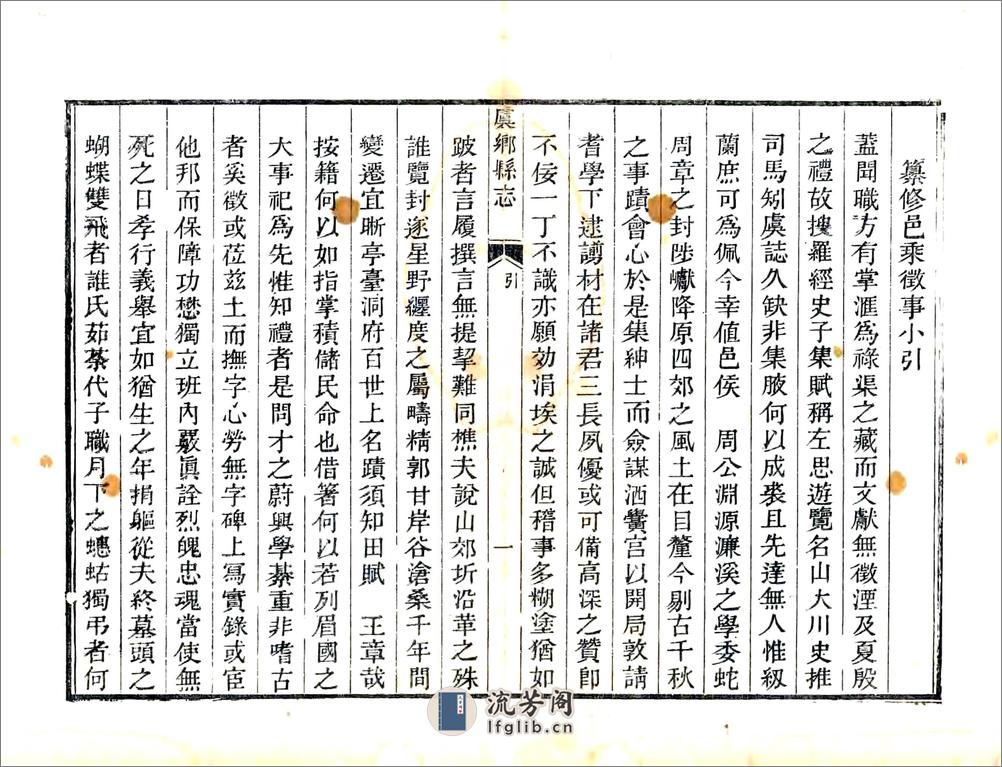 纂修邑乘徵事小引
蓋聞職方有掌滙爲祿渠之藏而文獻無徵湮及夏殷
之禮故搜羅經史子集賦稱左思遊覽名山大川史推
司馬矧虞誌久缺非集腋何以成裘且先達無人惟紉
蘭庶可爲佩今幸值邑侯 周公淵源濂溪之學委蛇
周章之封陟巘降原四郊之風土在目釐今剔古千秋
之事蹟會心於是集紳士而僉謀洒黌宫以開局敦請
耆學下逮謭材在諸君三長夙優或可備高深之贊即
不佞一丁不識亦願効涓埃之誠但稽事多糊塗猶如
虞鄉縣志
引
一
跛者言履撰言無提挈難同樵夫說山郊圻沿革之殊
誰覽封逐星野纒度之屬疇精郭甘岸谷滄桑千年問
變遷宜晰亭臺洞府百世上名蹟須知田賦 王章哉
按籍何以如指掌積儲民命也借箸何以若列眉國之
大事祀爲先惟知禮者是問才之蔚興學綦重非嗜古
者奚徵或莅茲土而撫字心勞無字碑上冩實錄或宦
他邦而保障功懋獨立班內覈眞詮烈魄忠魂當使無
死之日孝行義舉宜如猶生之年捐軀從夫終墓頭之
蝴蝶雙飛者誰氏茹荼代子職月下之蟪蛄獨弔者何
流芳阁
lfglib.cn